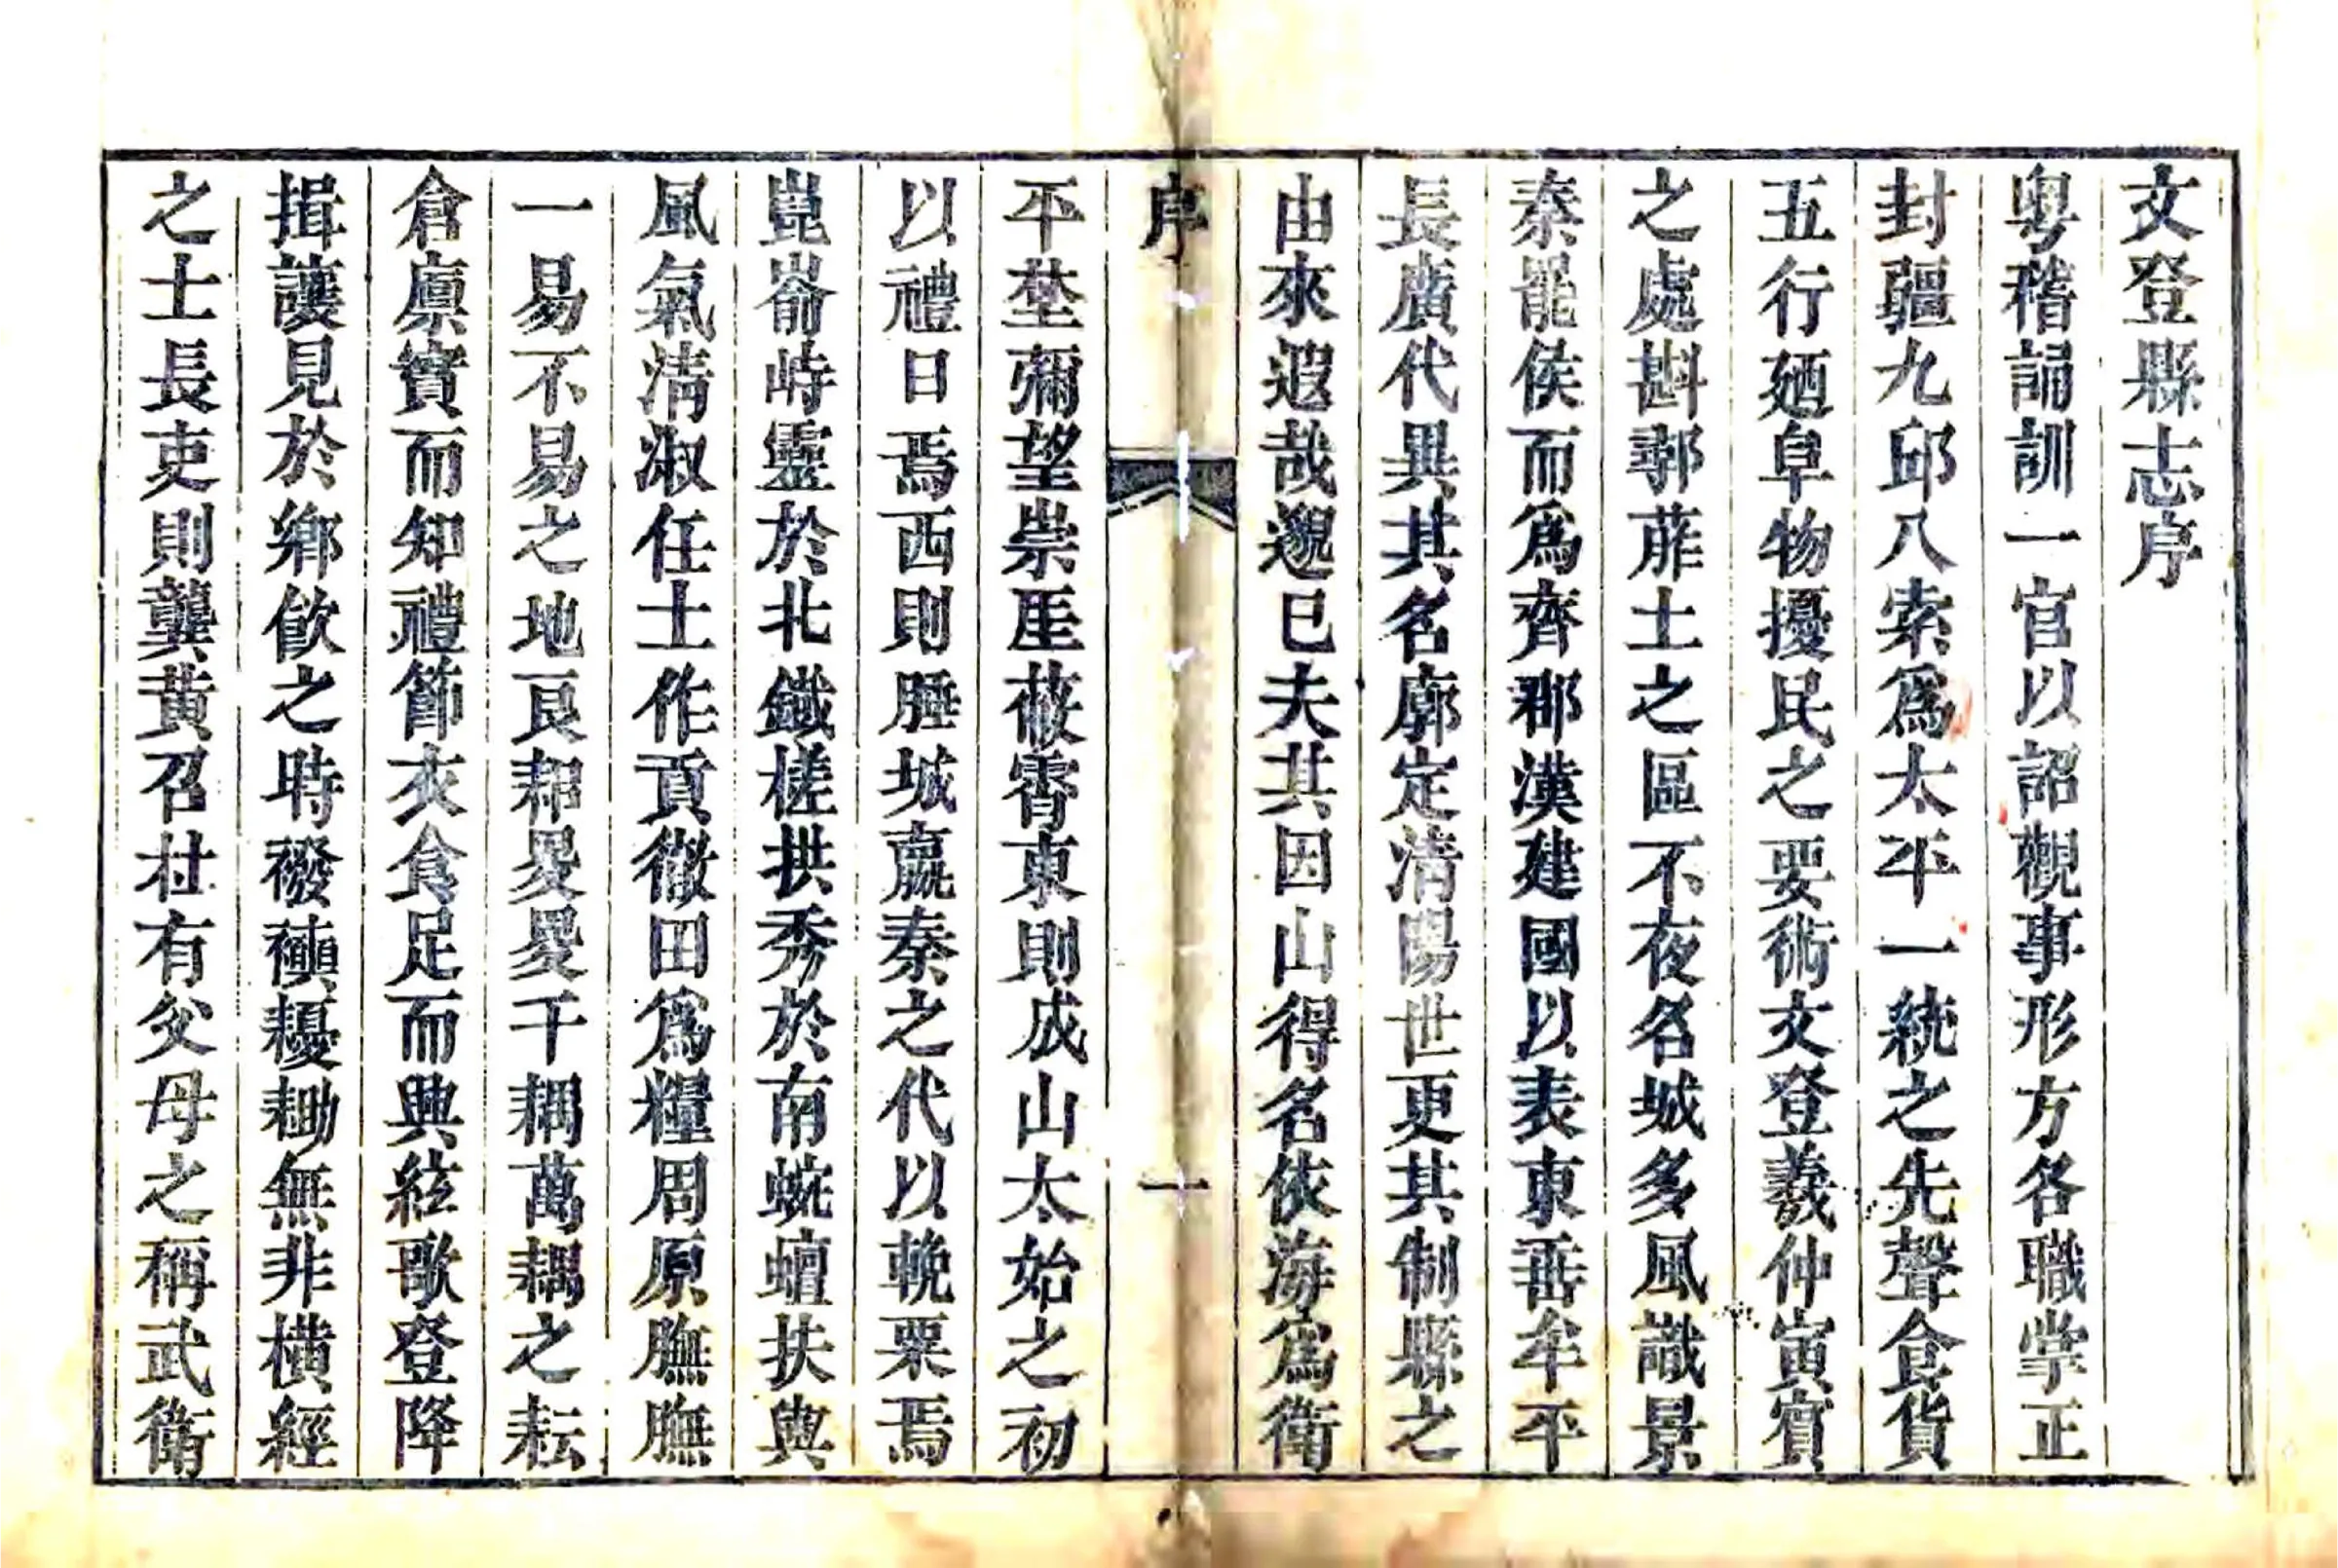 文登縣志序
粵稽誦訓一官以詔觀事形方各職掌正
封疆九邱八索爲太平一統之先聲食貨
五行廼阜物擾民之要術文登羲仲寅賓
之處斟鄩萑土之區不夜名城多風識景
秦罷侯而爲齊郡漢建國以表東番牟平
長廣代異其名廓定清陽世更其制縣之
由來遐哉邈已夫其因山得名依海爲衛
序
一
平埜彌望崇厓蔽霄東則成山太始之初
以禮日焉西則腄城嬴秦之代以輓粟焉
崑崙峙靈於北鐵槎拱秀於南蜿蟺扶輿
風氣淸淑任土作貢徹田爲糧周原膴膴
一易不易之地良耜畟畟千耦萬耦之耘
倉廩實而知禮節衣食足而興絃歌登降
揖讓見於鄉飲之時襏襫耰耡無非橫經
之士長吏則龔黃召杜有父母之稱武衛